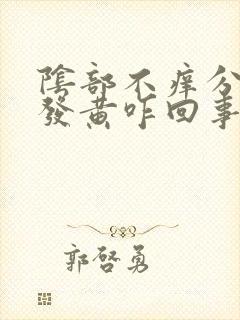 陰部不癢分
發黃咋回事
郭啓勇